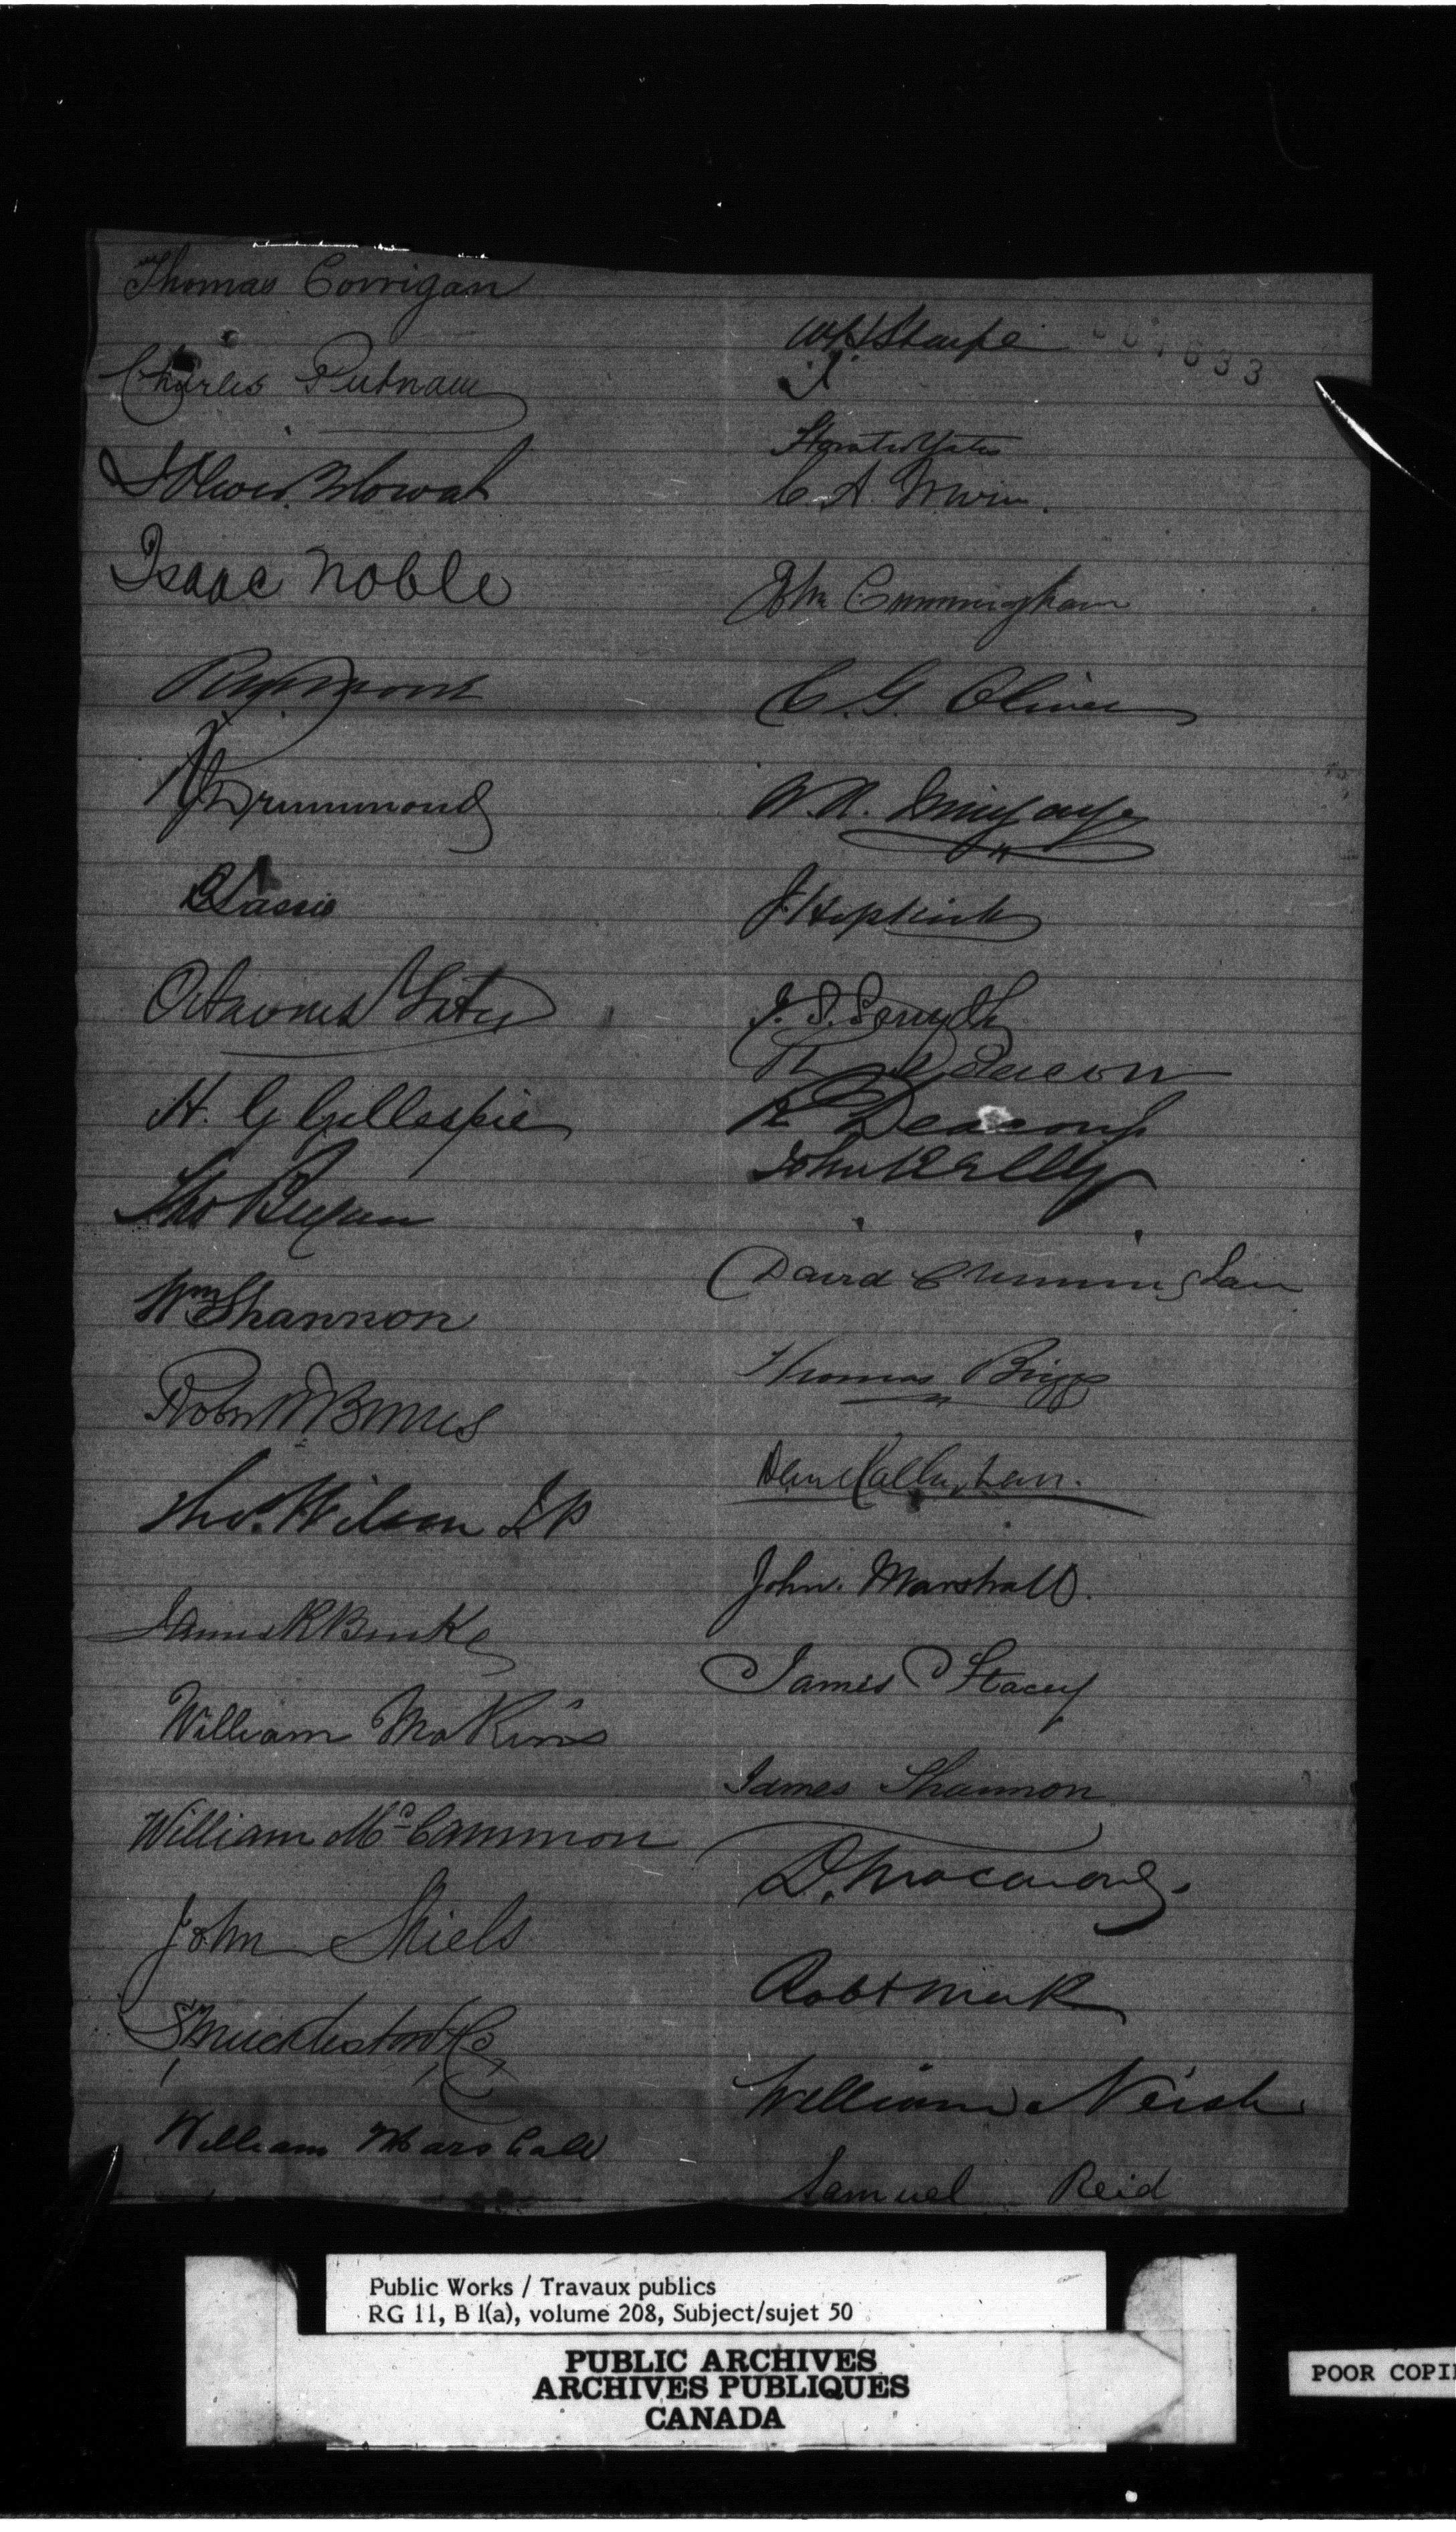 Thomas Corrigan
Charles Putnam
Mowat
Isaac Noble
Drummond
Octavius Yates
H. G Gillespie
Tho
Wm Shannon
Robert
Thos. Wilson
James R Burke
William
William Mc Cammon
John Shiels
S Muckleston & Co
William Marshall
W H Sharpe
633
Horatio Yates
C. A. Irwin.
John Cunningham
C. G. Oliver
W. N.
J. Hopkirk
J. S. Smyth
R Deacon
R Deacon
John Kelly
David Cunningham
Thomas Briggs
Callaghan.
John Marshall.
James Stacey
James Shannon
D. Macarow.
Robt Meek
William Neish
Samuel Reid
Public Works / Travaux publics
RG 11, B 1(a), volume 208, Subject/sujet 50
PUBLIC ARCHIVES
ARCHIVES PUBLIQUES
CANADA
POOR COPI